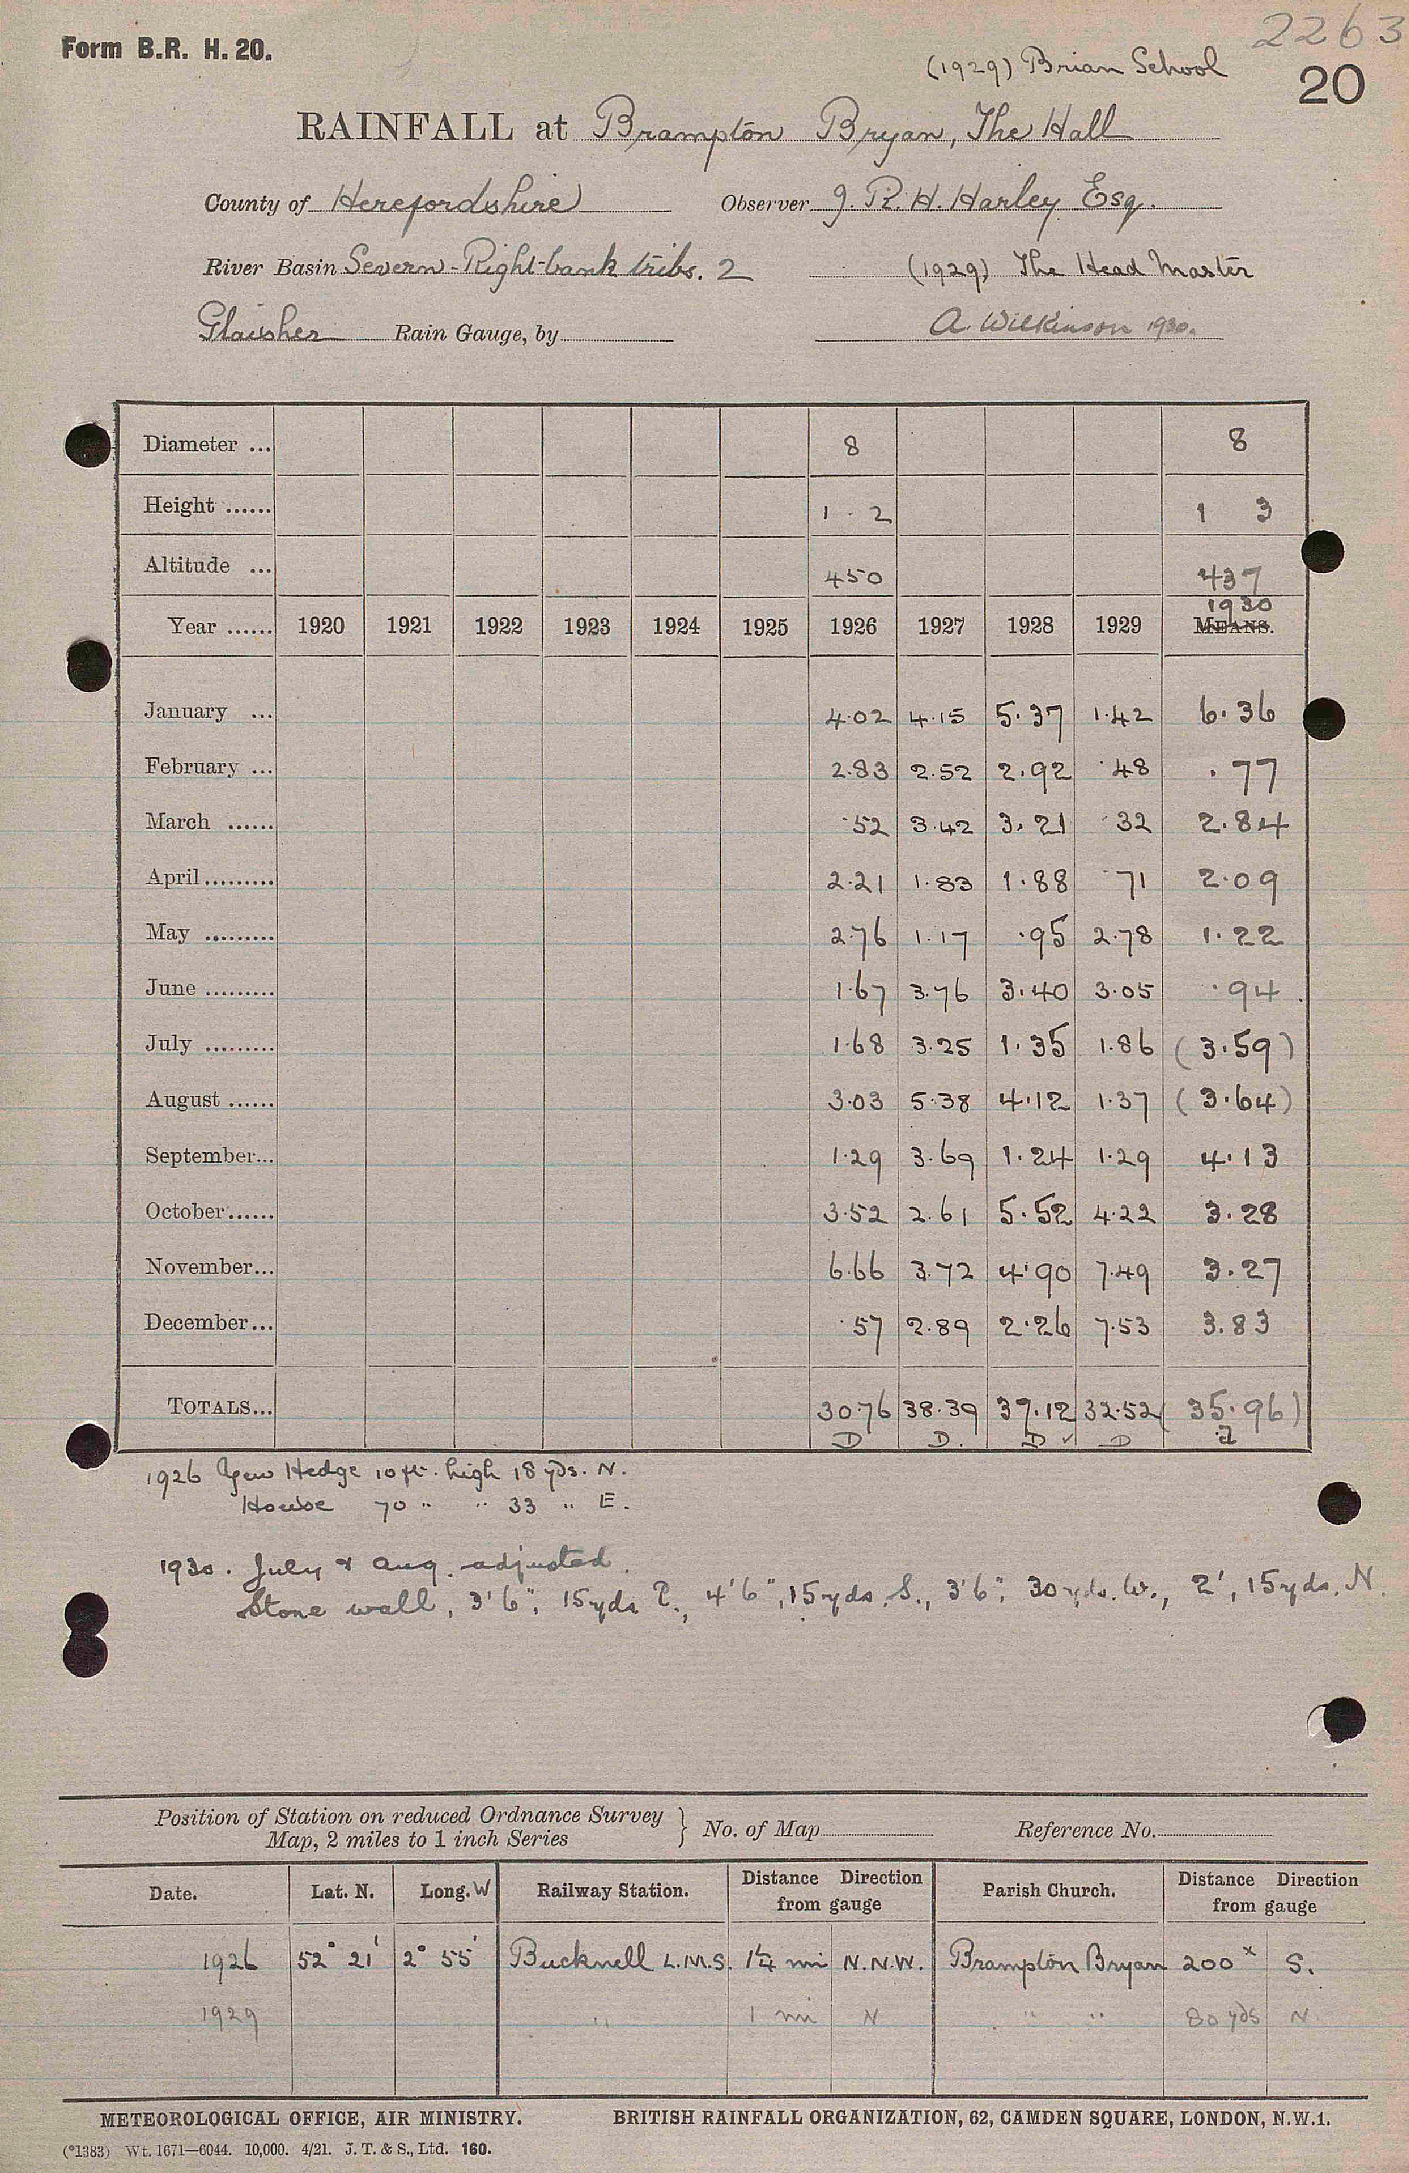 2263
Form B.R. H. 20.
(1929) Brian School
20
RAINFALL at Brampton Bryan, The Hall
County of Herefordshire Observer J. R. H. Harley Esq.
River Basin Severn - Right-bank tribs. 2 (1929) The Head Master
Glaisher Rain Gauge, by A. Wilkinson 1930.
Diameter ... 8 8
Height ...... 1 - 2 1 3
Altitude ... 450 437
1930
Year ...... 1920 1921 1922 1923 1924 1925 1926 1927 1928 1929 MEANS.
January ... 4.02 4.15 5.37 1.42 6.36
February ... 2.83 2.52 2.92 .48 .77
March ...... .52 3.42 3.21 .32 2.84
April ......... 2.21 1.83 1.88 .71 2.09
May ......... 2.76 1.17 .95 2.78 1.22
June ......... 1.67 3.76 3.40 3.05 .94
July ......... 1.68 3.25 1.35 1.86 (3.59)
August ...... 3.03 5.38 4.12 1.37 (3.64)
September... 1.29 3.69 1.24 1.29 4.13
October...... 3.52 2.61 5.52 4.22 3.28
November... 6.66 3.72 4.90 7.49 3.27
December... .57 2.89 2.26 7.53 3.83
TOTALS... 30.76 38.39 37.12 32.52 (35.96)
D D. D ✓ D
1926 Yew Hedge 10 ft. high 18 yds. N.
House 70 " " 33 " E.
1930. July & Aug. adjusted.
Stone wall, 3'6", 15 yds E., 4'6", 15 yds. S., 3'6", 30 yds. W., 2', 15 yds. N.
Position of Station on reduced Ordnance Survey
Map, 2 miles to 1 inch Series } No. of Map Reference No.
Date. Lat. N. Long. W Railway Station. Distance Direction from gauge Parish Church. Distance Direction from gauge
1926 52° 21' 2° 55' Bucknell L.M.S. 1¼ mi N.N.W. Brampton Bryan 200 x S.
1929 " 1 mi N " " 80 yds N.
METEOROLOGICAL OFFICE, AIR MINISTRY. BRITISH RAINFALL ORGANIZATION, 62, CAMDEN SQUARE, LONDON, N.W.1.
(*1383) Wt. 1671—6044. 10,000. 4/21. J. T. & S., Ltd. 160.